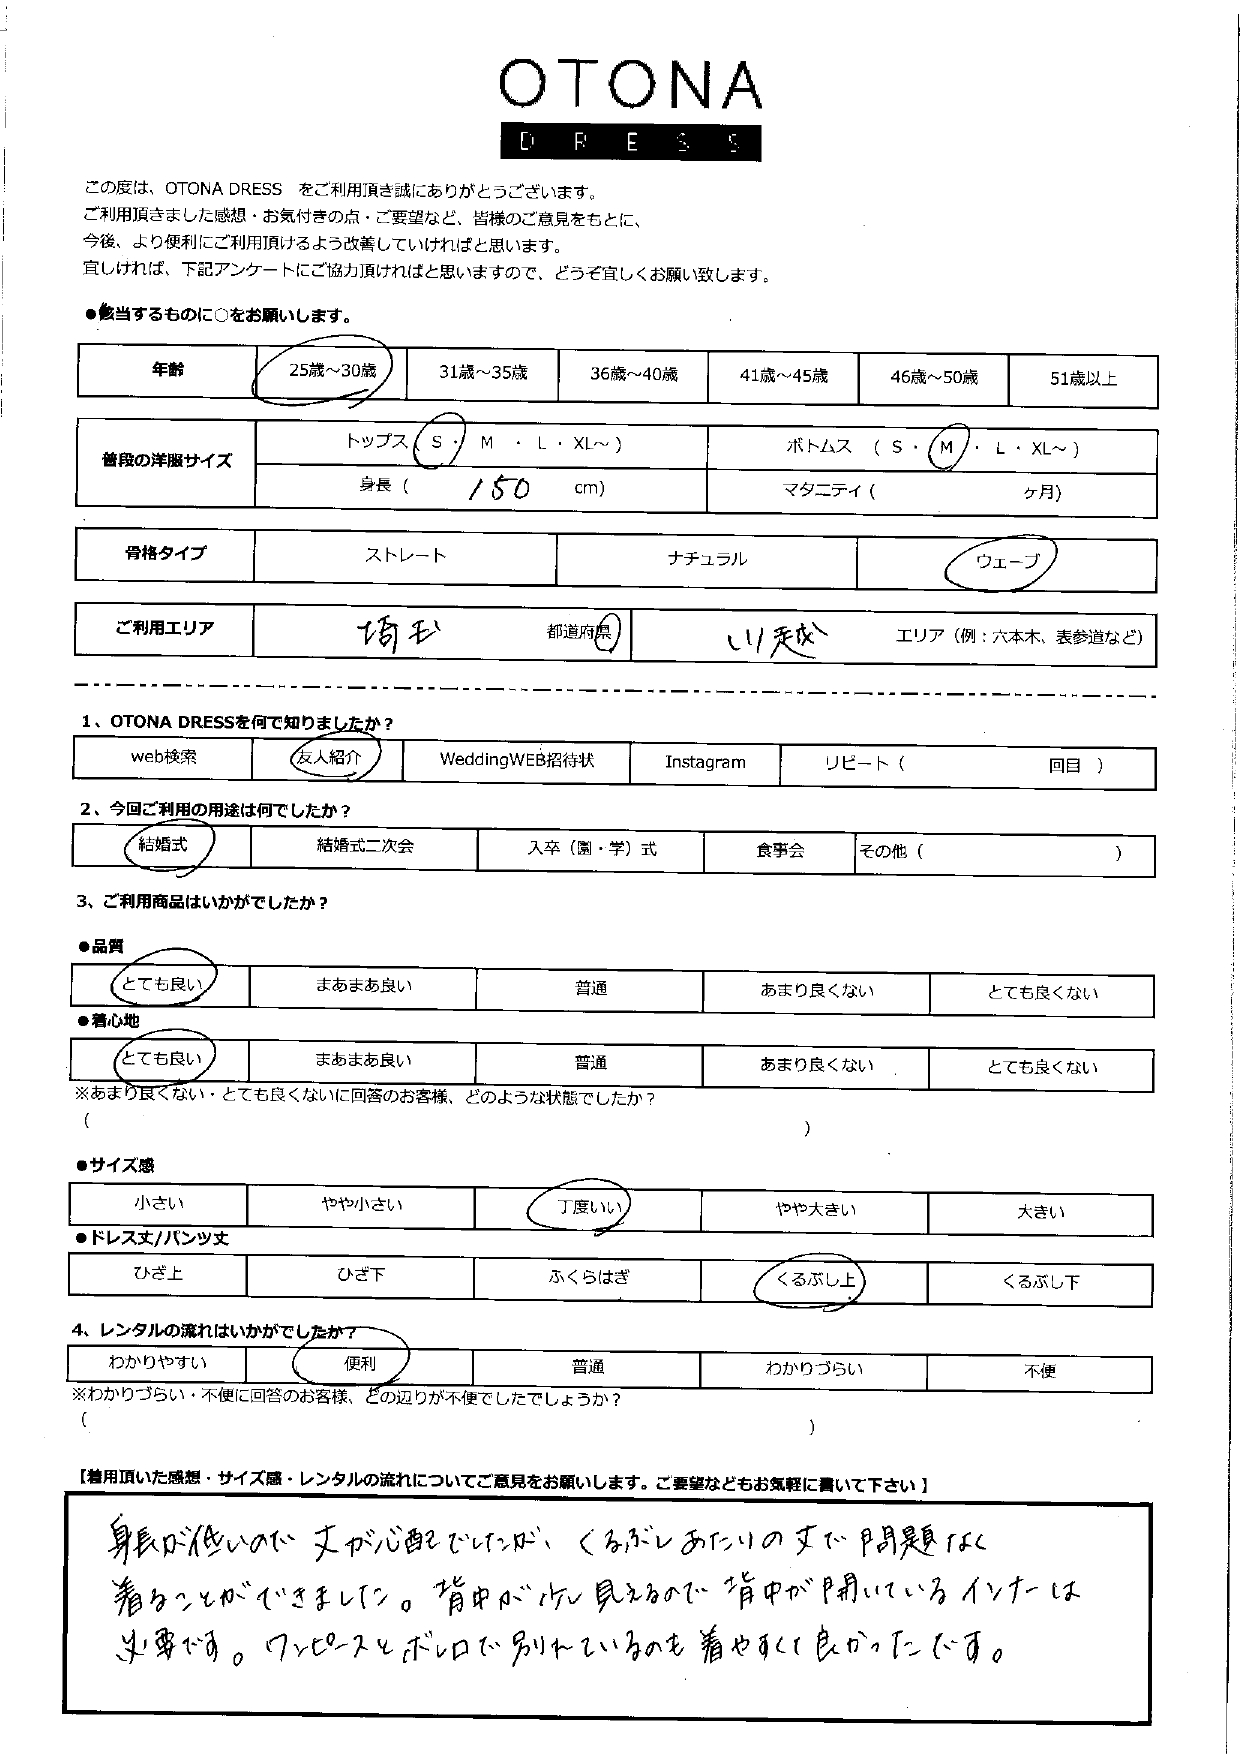 OTONA
DRESS
この度は、OTONA DRESS をご利用頂き誠にありがとうございます。
ご利用頂きました感想・お気付きの点・ご要望など、皆様のご意見をもとに、
今後、より便利にご利用頂けるよう改善していければと思います。
宜しければ、下記アンケートにご協力頂ければと思いますので、どうぞ宜しくお願い致します。
●該当するものに○をお願いします。
年齢 25歳～30歳 31歳～35歳 36歳～40歳 41歳～45歳 46歳～50歳 51歳以上
普段の洋服サイズ トップス ( S ・ M ・ L ・ XL～ ) ボトムス ( S ・ M ・ L ・ XL～ )
身長 ( 150 cm) マタニティ ( ヶ月)
骨格タイプ ストレート ナチュラル ウェーブ
ご利用エリア 埼玉 都道府県 川越 エリア（例：六本木、表参道など）
1、OTONA DRESSを何で知りましたか？
web検索 友人紹介 WeddingWEB招待状 Instagram リピート ( 回目 )
2、今回ご利用の用途は何でしたか？
結婚式 結婚式二次会 入卒（園・学）式 食事会 その他 ( )
3、ご利用商品はいかがでしたか？
●品質
とても良い まあまあ良い 普通 あまり良くない とても良くない
●着心地
とても良い まあまあ良い 普通 あまり良くない とても良くない
※あまり良くない・とても良くないに回答のお客様、どのような状態でしたか？
( )
●サイズ感
小さい やや小さい 丁度いい やや大きい 大きい
●ドレス丈/パンツ丈
ひざ上 ひざ下 ふくらはぎ くるぶし上 くるぶし下
4、レンタルの流れはいかがでしたか？
わかりやすい 便利 普通 わかりづらい 不便
※わかりづらい・不便に回答のお客様、どの辺りが不便でしたでしょうか？
( )
【着用頂いた感想・サイズ感・レンタルの流れについてご意見をお願いします。ご要望などもお気軽に書いて下さい】
身長が低いので丈が心配でしたが、くるぶしあたりの丈で問題なく
着ることができました。背中が少し見えるので背中が開いているインナーは
必要です。ワンピースとボレロで別れているのも着やすくて良かったです。